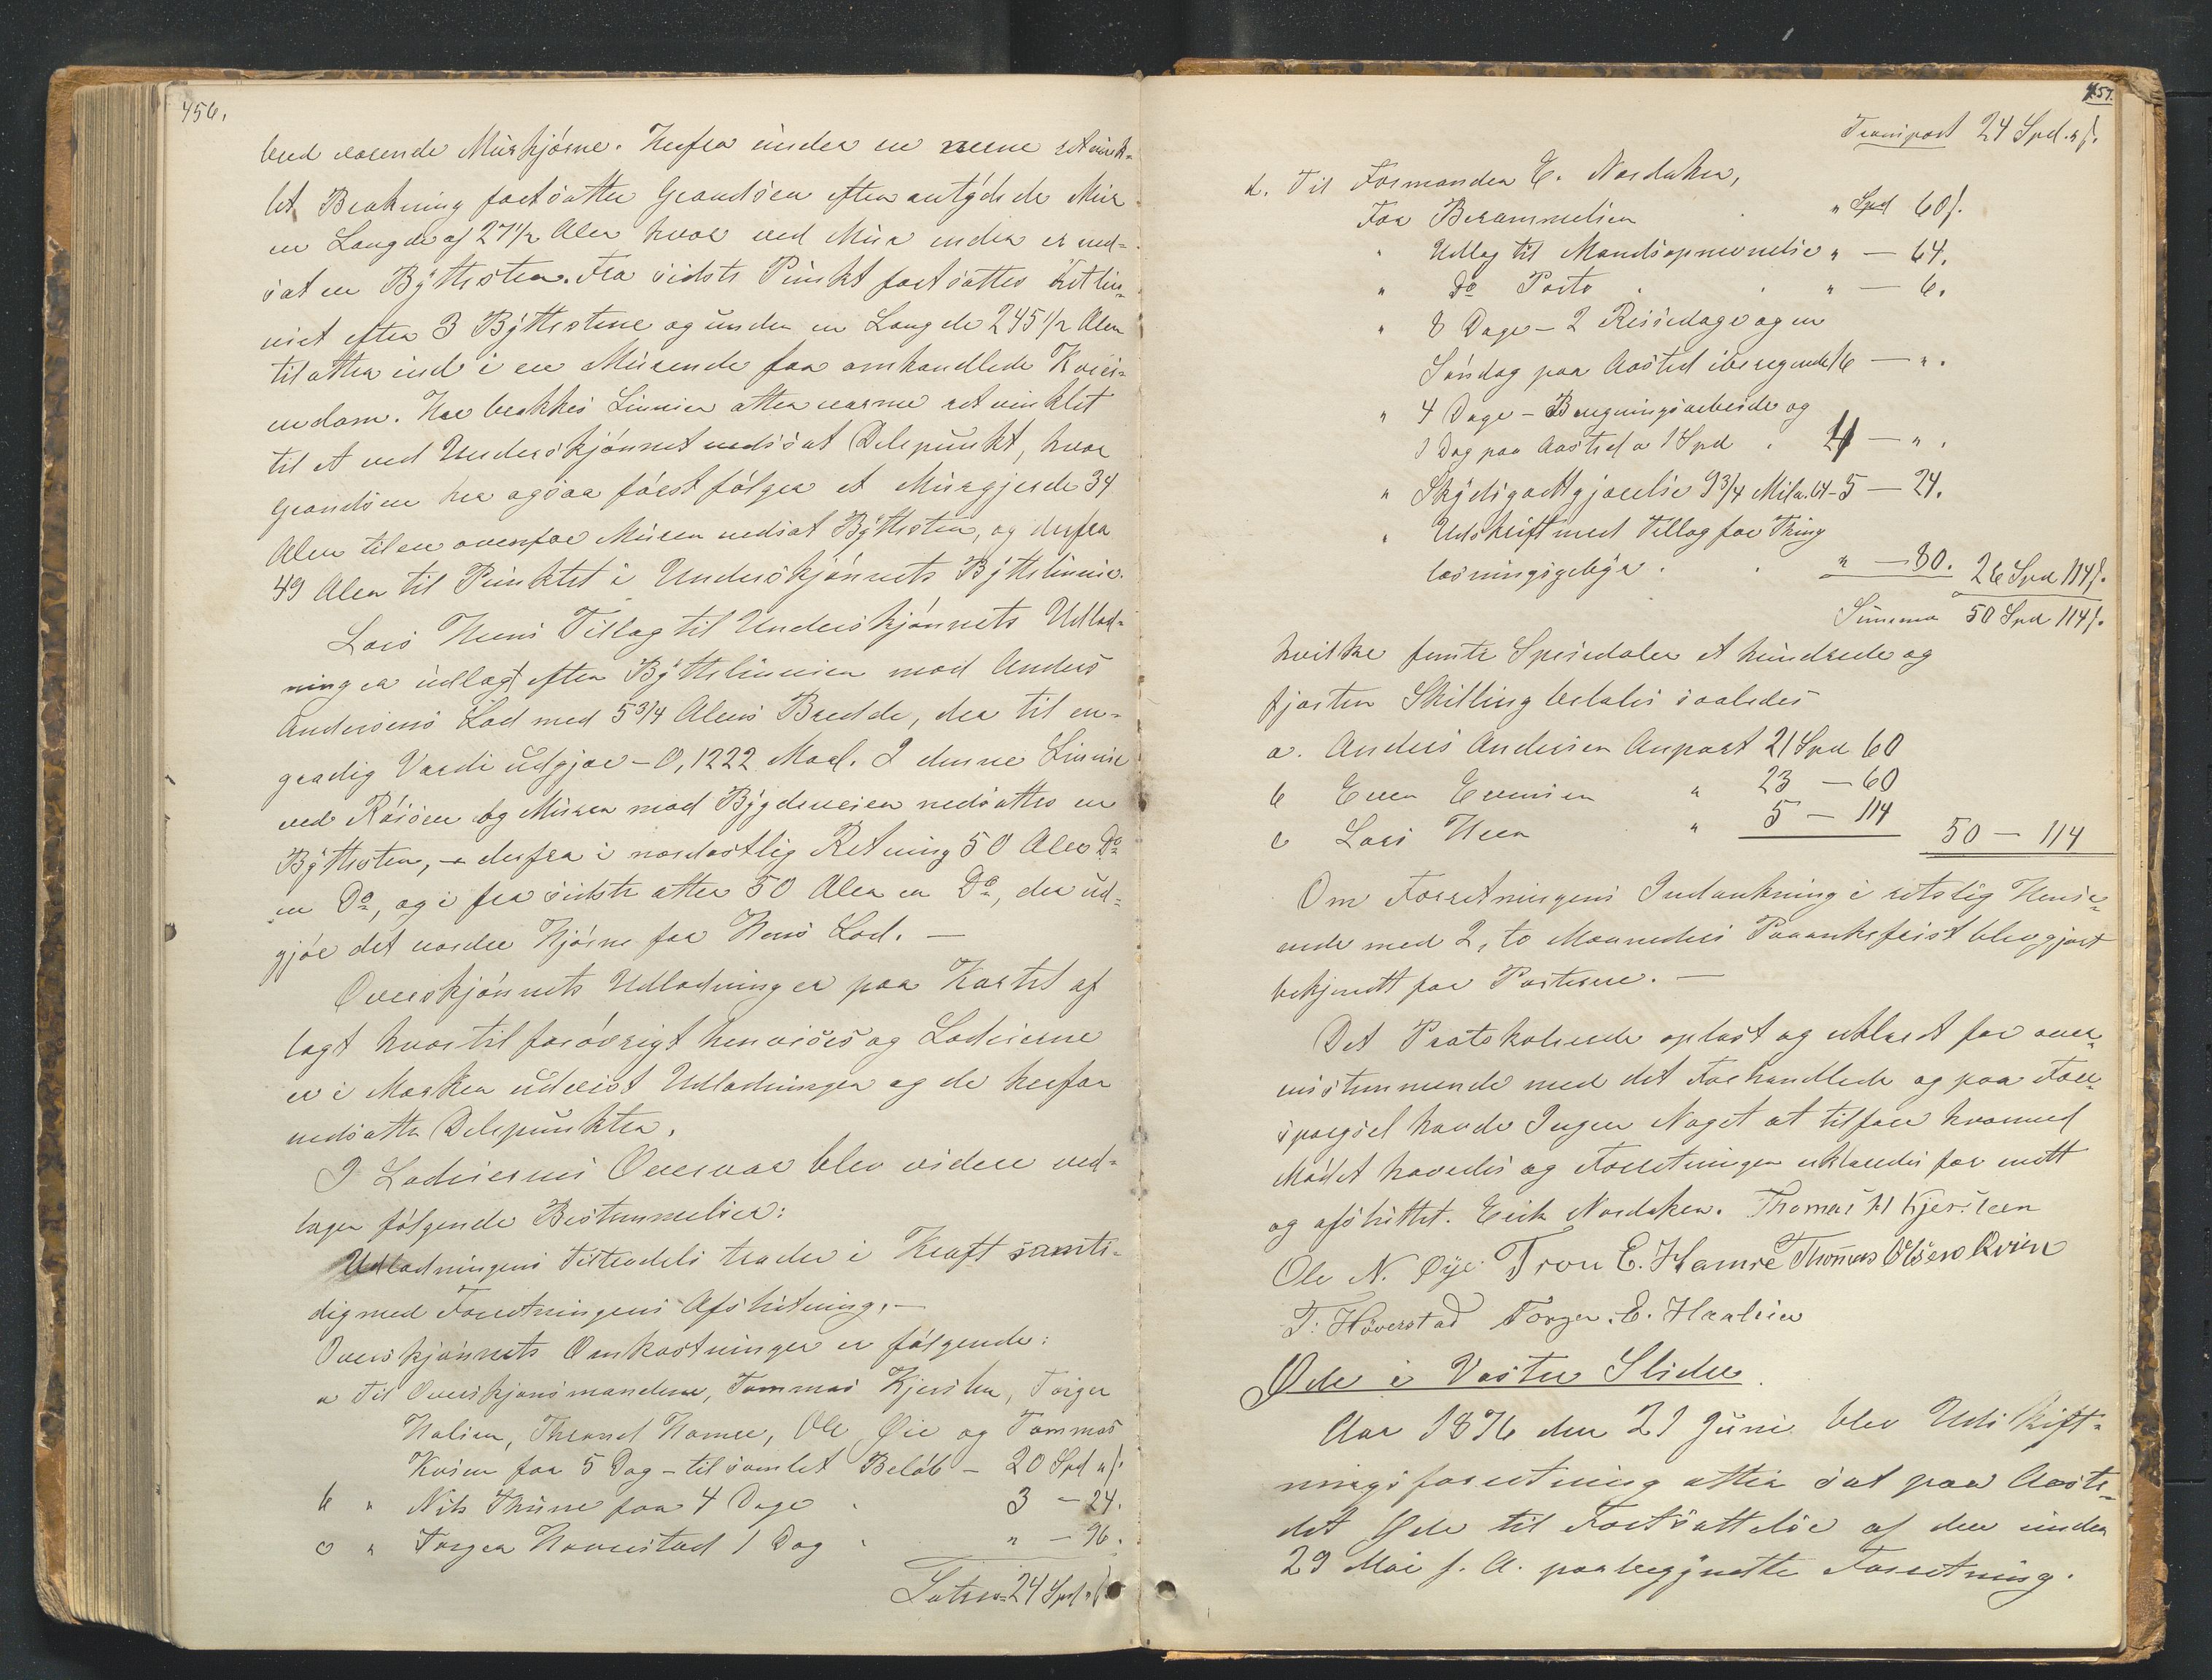 456.
hvad værende Murhjørne. Herfra under en nærne retvink-
let Brækning fortsætter Grændsen efter antydede Mur
en Længde af 27 1/2 Alen hvor ved Mur enden er ned-
sat en Byttesten. Fra sidste Punkt fortsættes Retlin-
niet efter 3 Byttestene og under en Længde 245 1/2 Alen
til atter ind i en Murende for omhandlede Kvei-
endom. Her brækkes Linnien atter nærme retvinklet
til et ved Underskjønnet nedsat Delepunkt, hvor
Grændsen her ogsaa først følger et Murgjerde 34
Alen til en ovenfor Muren nedsat Byttesten, og derfra
49 Alen til Punktet i Underskjønnets Byttelinnie.
Lars Heens Tillæg til Underskjønnets Udlod-
ning er udlagt efter Byttelinnien mod Anders
Andersens Lod med 5 3/4 Alens Bredde, der til en-
gradig Værdi udgjør - 0,1222 Maal. I denne Linnie
ved Røisen og Muren mod Bygdeveien nedsattes en
Byttesten, - derfra i nordostlig Retning 50 Alen Do
en Do, og i fra sidste atter 50 Alen en Do, der ud-
gjør det nordre Hjørne for Heens Lod. -
Overskjønnets Udlodninger paa Kartet af
lagt hvortil forøvrigt henvises og Lodeierne
er i Marken udvist Udlodningen og de herfor
nedsatte Delepunkter.
I Lodeiernes Overvær blev videre ved-
tagen følgende Bestemmelser:
Udlodningens Tiltrædels træder i Kraft samti-
dig med Forretningens Afslutning. -
Overskjønnets Omkostninger er følgende:
a Til Overskjønsmændene, Tommas Kjersten, Torger
Halien, Thrond Hamre, Ole Øie og Tommas
Kvien for 5 Dag - tilsamlet Beløb - 20 Spd " ß.
b " Nils Thune for 4 Dage . 3 - 24.
c " Torger Hovrestad 1 Dag . " - 96.
Latus 24 Spd " ß
457.
Transport 24 Spd. " ß.
d. Til Formanden E. Nordaker,
For Berammelsen . " Spd 60 ß.
" Udlæg til Mandsopnevnelse " - 64.
" Do Porto . . " - 6.
" 8 Dage - 2 Reisedage og en
Søndag paa Aasted iberegnede 16 - ".
" 4 Dage - Beregningsarbeide og
1 Dag paa Aasted a 1 Spd . 4 - ".
" Skydsgodtgjørelse 9 3/4 Mil a. 64 - 5 - 24.
" Udskrift med Tillæg for Thing
læsningsgebyr . . " - 80. 26 Spd 114 ß.
Summa 50 Spd 114 ß.
hvilke femti Speciedaler et hundrede og
fjorten Skilling betales saaledes
a. Anders Andersen Anpart 21 Spd 60
b Even Evensen " 23 - 60
c Lars Heen " 5 - 114 50 - 114
Om Forretningens Indankning i retslig Hense-
ende med 2, to Maaneders Paaankefrist blev gjort
bekjendt for Parterne. -
Det Protokolerede oplæst og erklæret for over-
ensstemmende med det Forhandlede og paa Fore-
spørgsel havde Ingen Noget at tilføie hvormed
Mødet hævedes og Forretningen erklæredes for endt
og afsluttet. Erik Nordaker. Thomas H Kjersteen
Ole N. Øye Tron E. Hamre Thommas Olsen Kvien
T. Høverstad Torger. E. Haalien
Øde i Vestre Slidre
Aar 1876 den 21 Juni blev Udskift-
ningsforretning atter sat paa Aaste-
det Øde til Fortsættelse af den under
29 Mai f. A. paabegyndte Forretning.